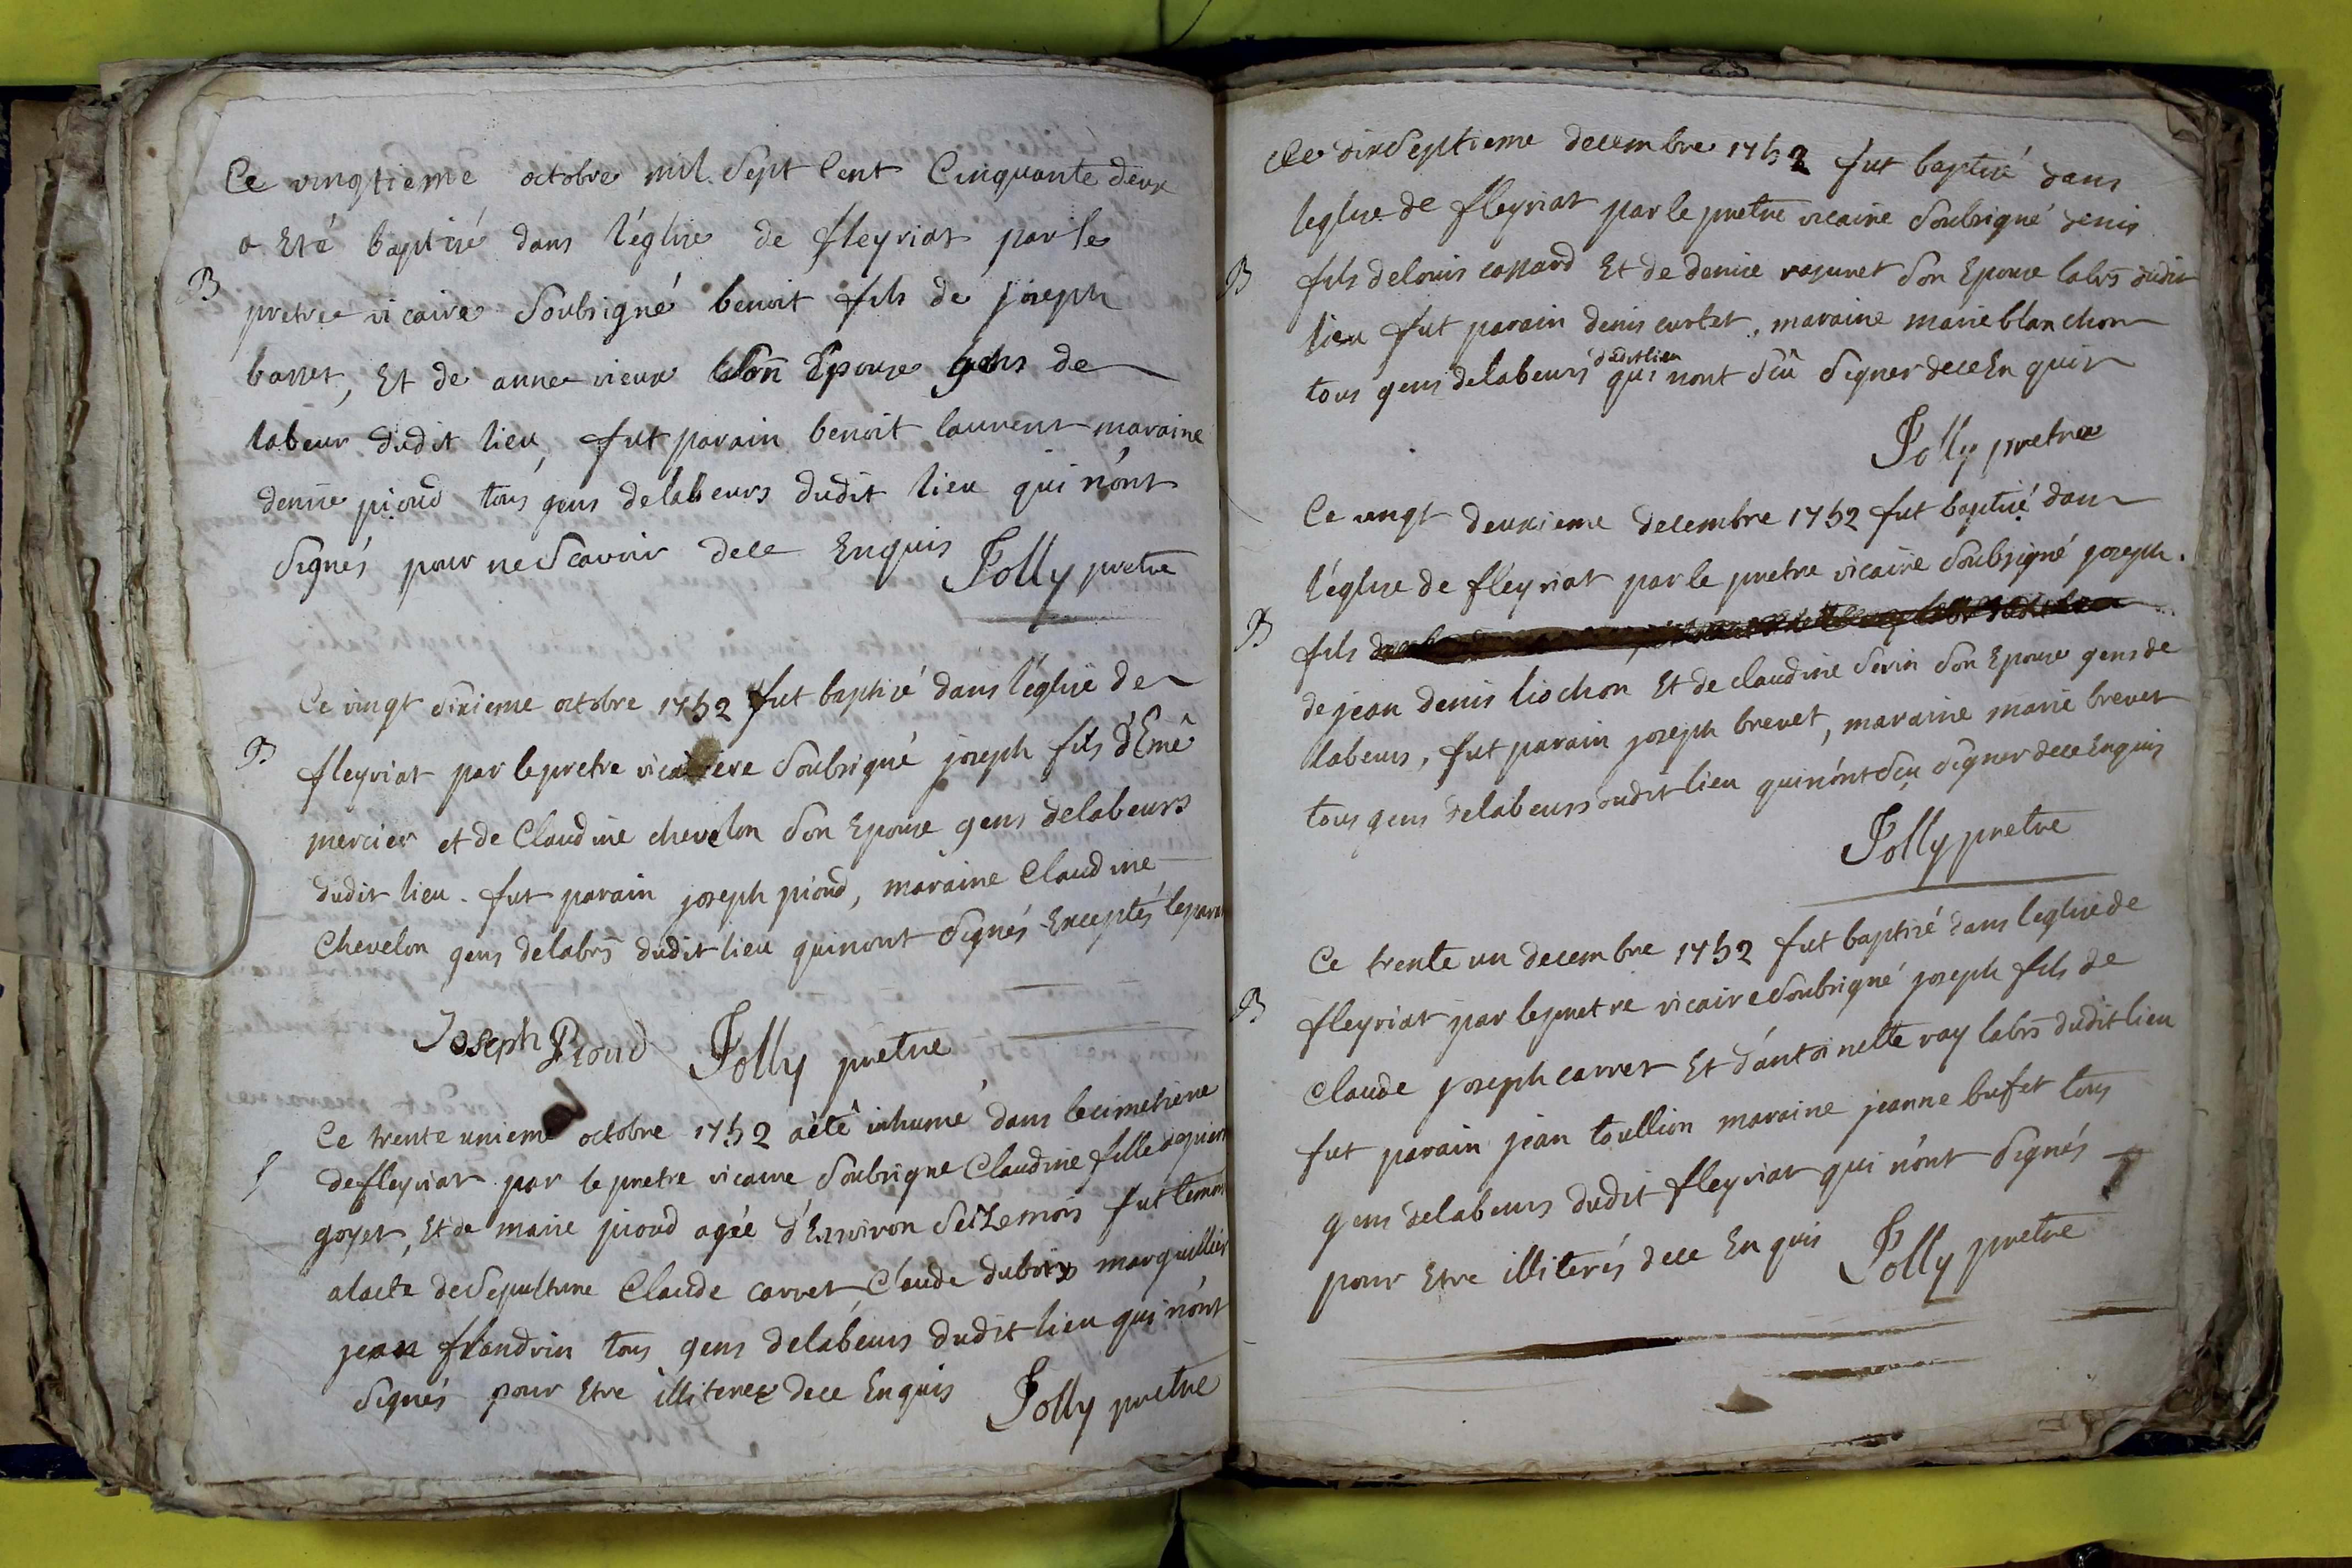 Ce vingtieme octobre mil Sept Cent Cinquante deux
a Eté baptisé dans l'églize de fleyriat par le
B
pretre vicaire Soubsigné benoit fils de joseph
basset, Et de anne vieux Son Epouse gens de
labeur dudit lieu, fut parain benoit laurent maraine
denise pioud tous gens de labeurs dudit lieu qui n'ont
Signés pour ne Scavoir de ce Enquis Jolly pretre
Ce vingt Sixieme octobre 1752 fut baptizé dans l'églize de
B
fleyriat par le pretre vicaire Soubsigné joseph fils d'Emê
mercier et de Claudine chevelon Son Epouse gens de labeurs
dudit lieu. fut parain joseph pioud, maraine Claudine
Chevelon gens de labrs dudit lieu qui nont Signés Exceptés le parain
Joseph Pioud Jolly pretre
Ce trente unieme octobre 1752 a été inhumé dans le cimetiere
S
de fleyriat par le pretre vicaire Soubsigne Claudine fille de pierre
goyet, Et de marie pioud agée d'Environ Seize mois fut temoins
a lacte de Sepulture Claude carret, Claude dubois marguillier
jean flandrin tous gens de labeurs dudit lieu qui n'ont
Signés pour Etre illiterez de ce Enquis Jolly pretre
Ce dixSeptieme decembre 1752 fut baptizé dans
leglize de fleyriat par le pretre vicaire Soubsigné denis
B
fils de louis cassard Et de denise razuret Son Epouse labrs dudit
lieu fut parain denis curtet, maraine marie blanchon
dudit lieu
tous gens de labeurs qui nont Sçû Signer de ce Enquis
Jolly pretre
Ce vingt deuxieme decembre 1752 fut baptizé dans
l'églize de fleyriat par le pretre vicaire Soubsigné joseph.
B
fils
de jean denis liochon Et de claudine Serin Son Epouse gens de
labeurs, fut parain joseph brevet, maraine marie brevet
tous gens de labeurs dudit lieu qui n'ont Sçu Signer de ce Enquis
Jolly pretre
Ce trente un decembre 1752 fut baptizé dans leglize de
B
fleyriat par le pretre vicaire Soubsigné joseph fils de
Claude joseph carret Et d'antoinette ray labrs dudit lieu
fut parain jean toullion maraine jeanne bufet tous
gens de labeurs dudit fleyriat qui n'ont Signés
pour Etre illiterés de ce Enquis Jolly pretre